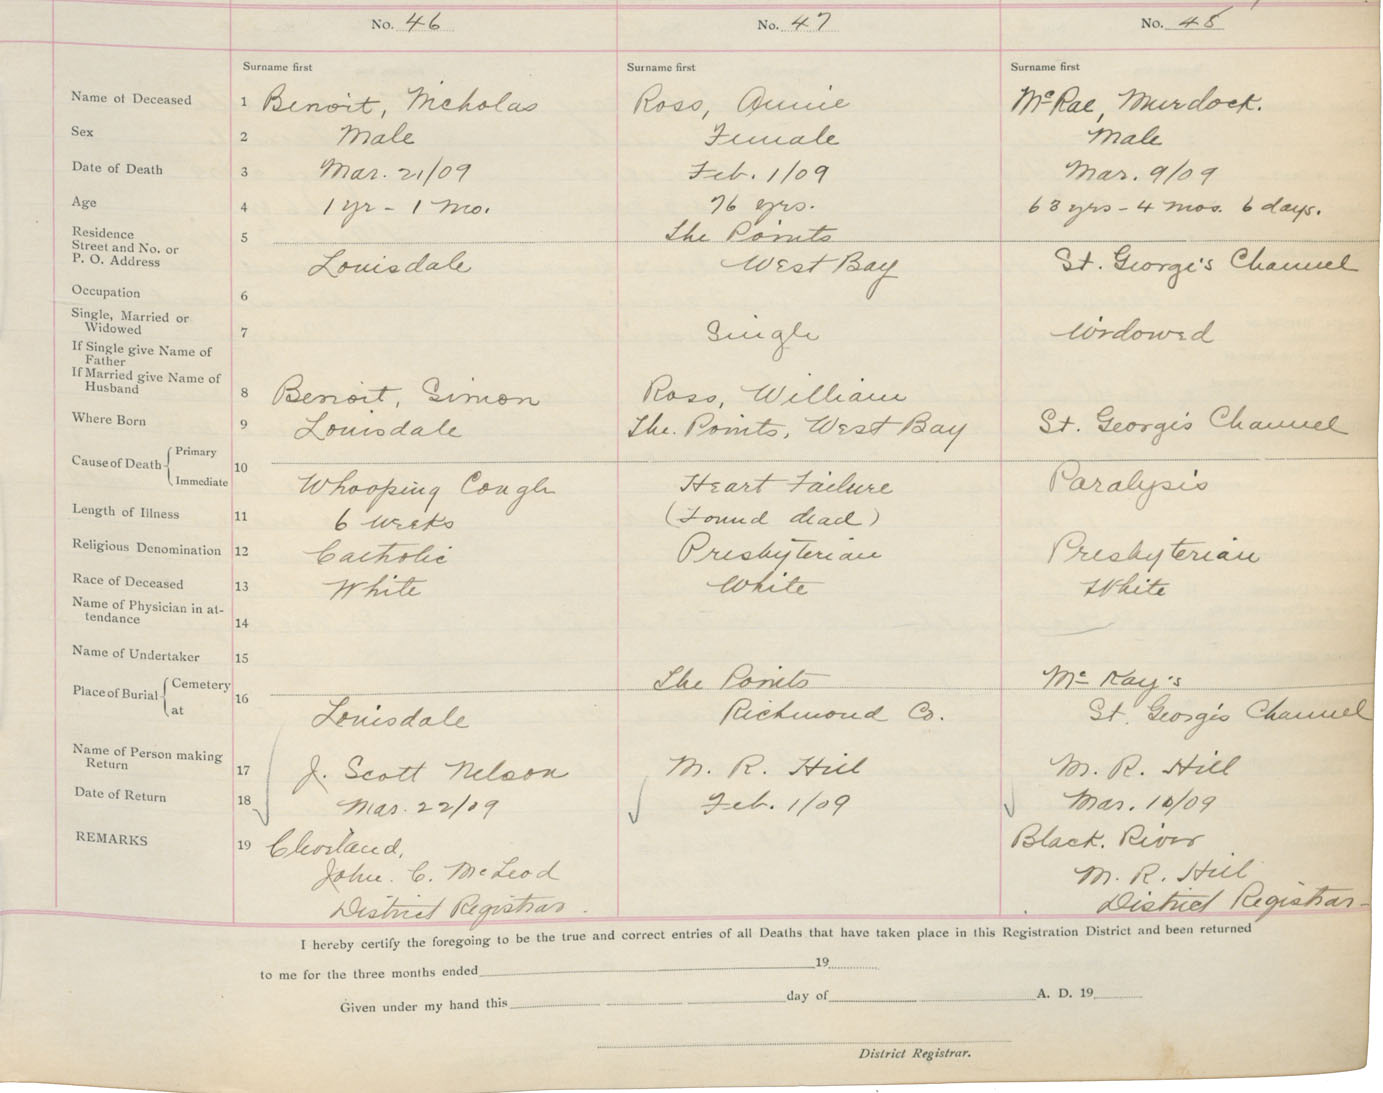 No. 46 No. 47 No. 48
Surname first Surname first Surname first
Name of Deceased 1 Benoit, Nicholas Ross, Annie McRae, Murdock.
Sex 2 Male Female Male
Date of Death 3 Mar. 21/09 Feb. 1/09 Mar. 9/09
Age 4 1 yr - 1 mo. 76 yrs. 63 yrs - 4 mos. 6 days.
Residence 5 The Points
Street and No. or
P. O. Address Louisdale West Bay St. George's Channel
Occupation 6
Single, Married or
Widowed 7 Single Widowed
If Single give Name of
Father
If Married give Name of
Husband 8 Benoit, Simon Ross, William
Where Born 9 Louisdale The Points, West Bay St. George's Channel
Cause of Death Primary 10
Immediate Whooping Cough Heart Failure Paralysis
Length of Illness 11 6 weeks (Found dead)
Religious Denomination 12 Catholic Presbyterian Presbyterian
Race of Deceased 13 White White White
Name of Physician in at-
tendance 14
Name of Undertaker 15
Place of Burial Cemetery 16 The Points McKay's
at Louisdale Richmond Co. St. George's Channel
Name of Person making
Return 17 J. Scott Nelson M. R. Hill M. R. Hill
Date of Return 18 Mar. 22/09 Feb. 1/09 Mar. 10/09
REMARKS 19 Black River
John C. McLeod M. R. Hill
District Registrar. District Registrar
I hereby certify the foregoing to be the true and correct entries of all Deaths that have taken place in this Registration District and been returned
to me for the three months ended 19
Given under my hand this day of A. D. 19
District Registrar.